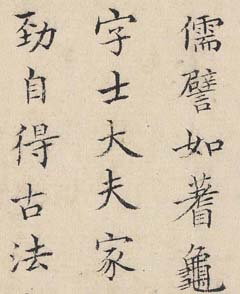 儒譬如蓍龜
字士大夫家
勁自得古法